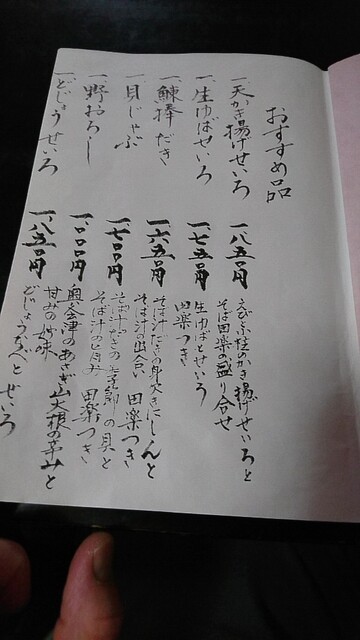 おすすめ品
一、天かき揚げせいろ
一、八五〇円
えび小柱のかき揚げせいろと
そば田楽の盛り合せ
一、生ゆばせいろ
一、七五〇円
生ゆばとせいろ
田楽つき
一、鰊棒だき
一、六五〇円
そば汁だきの身欠きにしんと
そば汁の出合い 田楽つき
一、貝じゃぶ
一、七〇〇円
の貝と
そば汁の 田楽つき
一、野おろし
一、〇〇〇円
奥会津のあざき大根の辛みと
甘みの妙味
一、どじょうせいろ
一、八五〇円
どじょうなべとせいろ